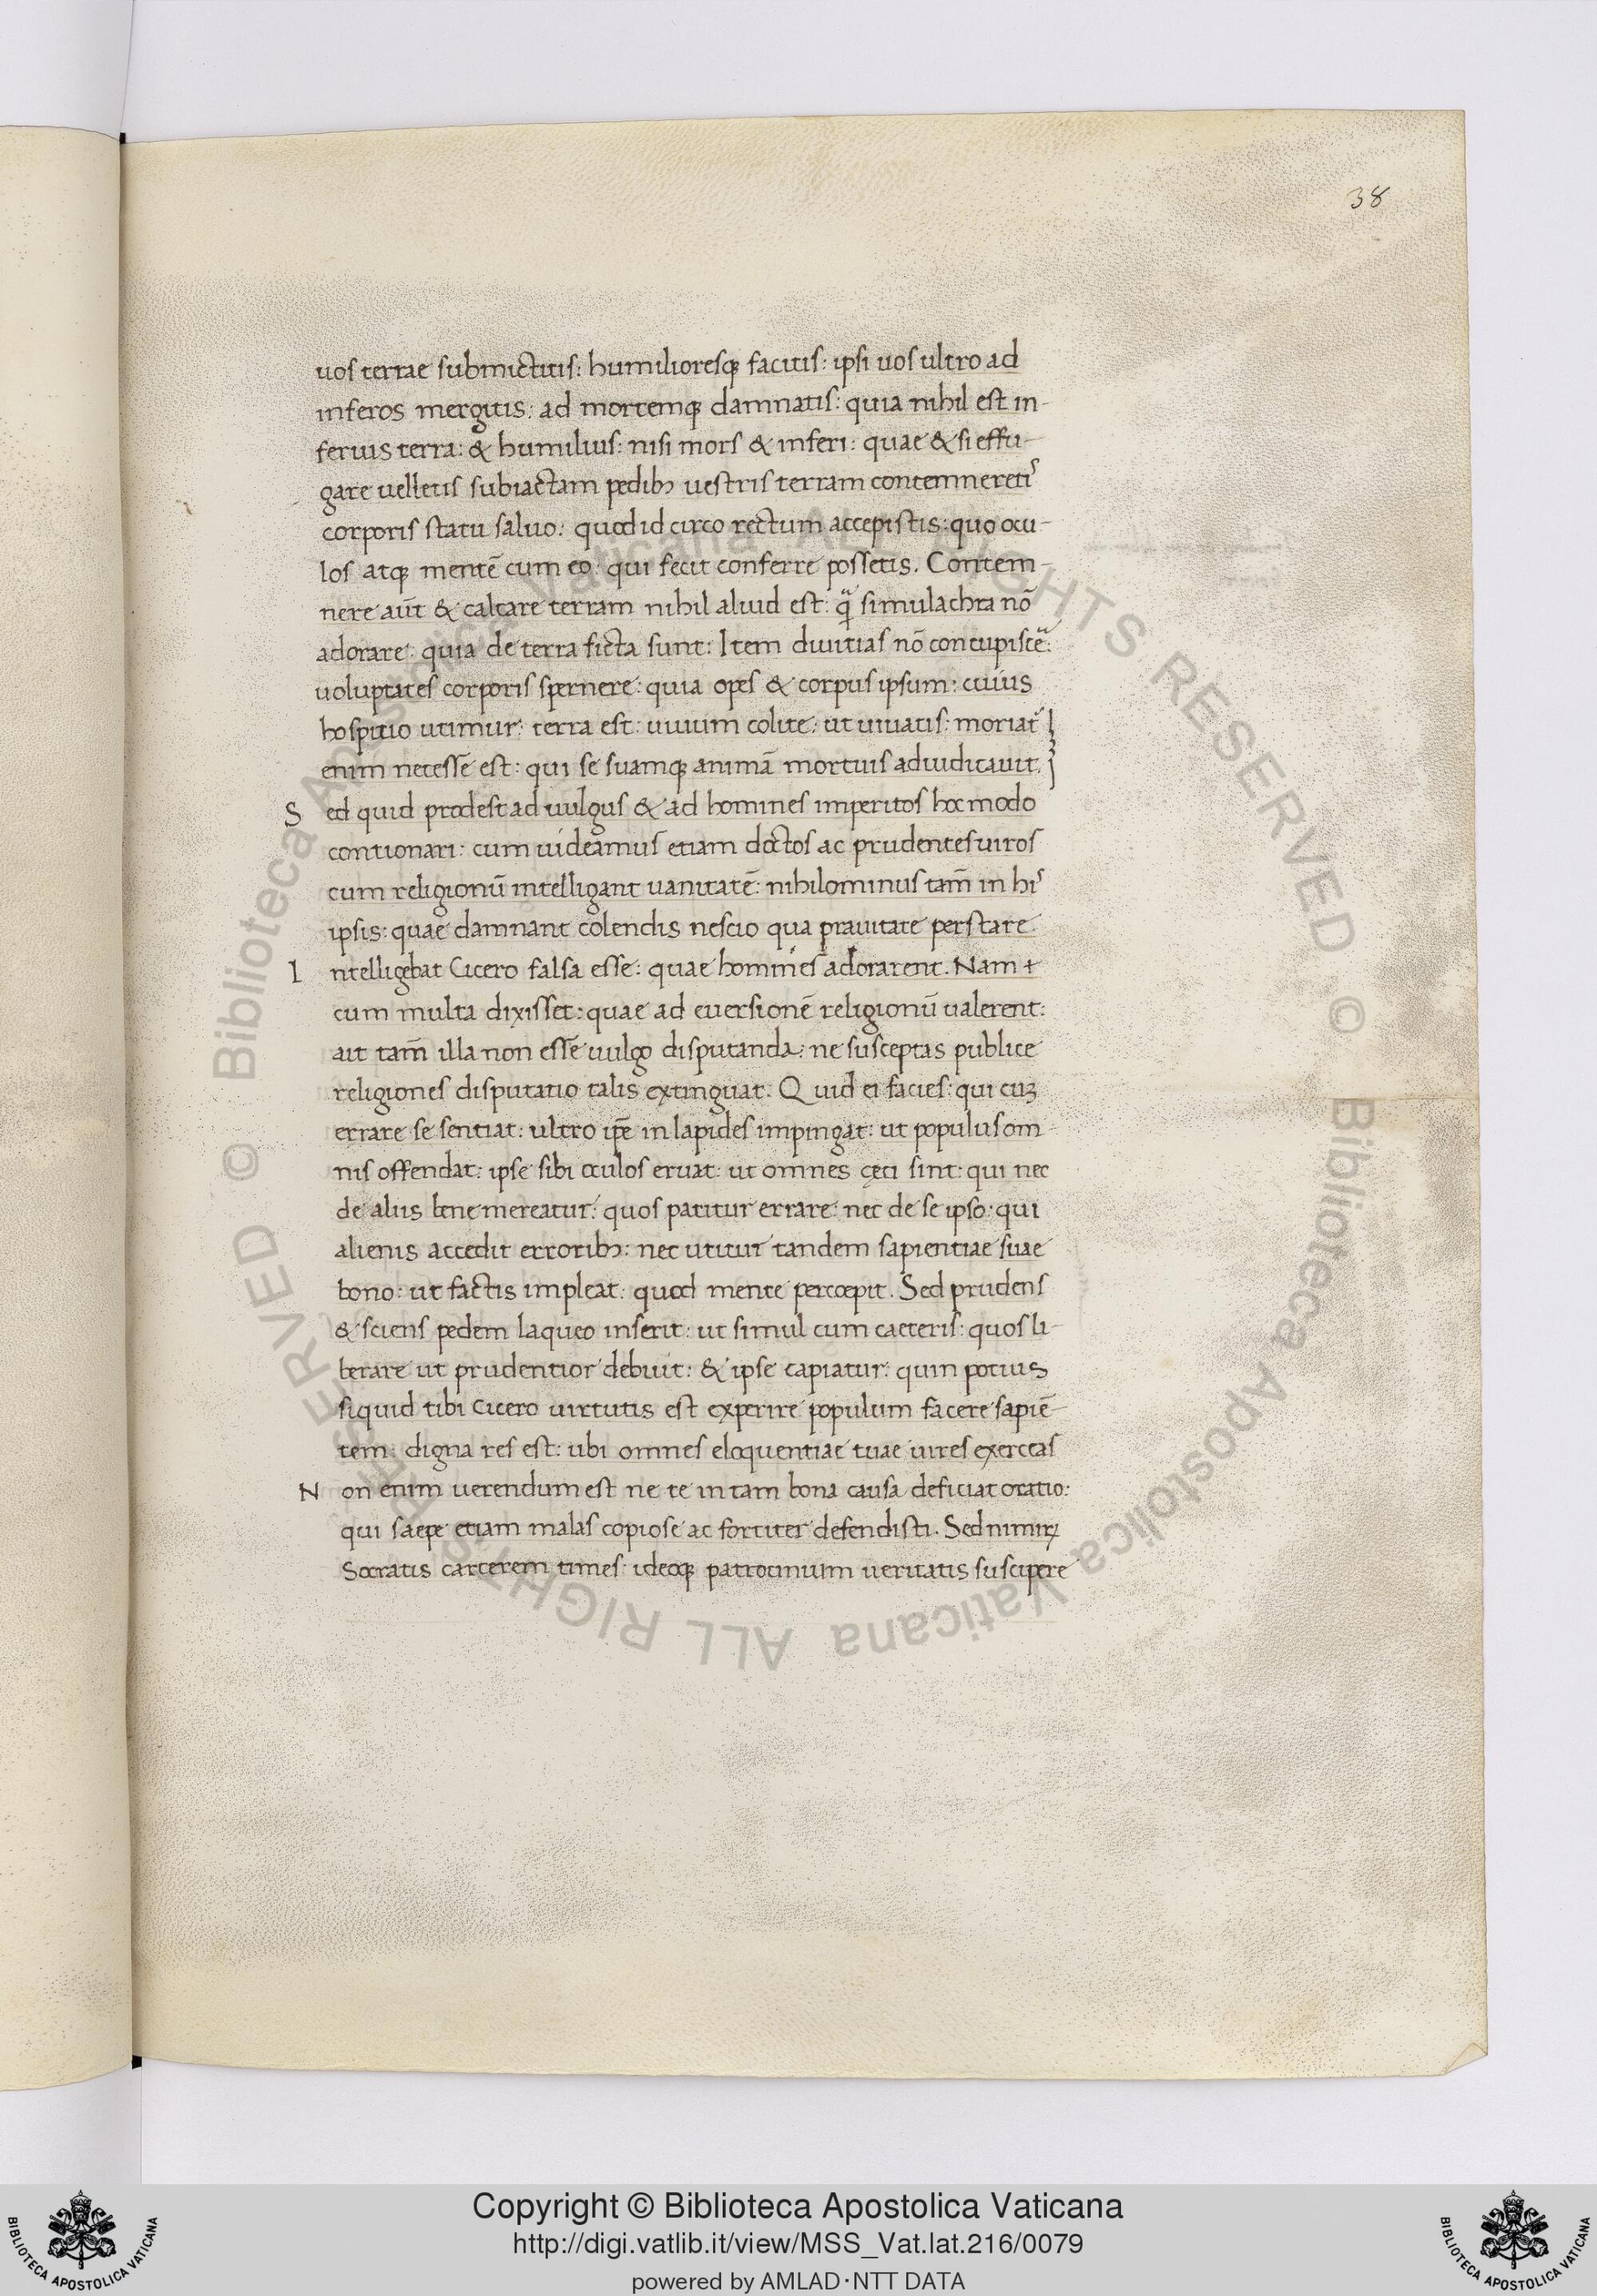 38
uos terrae submictitis: humilioresq; facitis: ipsi uos ultro ad
inferos mergitis: ad mortemq; damnatis: quia nihil est in-
ferius terra: & humilius: nisi mors & inferi: quae & si effu-
gare uelletis subiactam pedib; uestris terram contemneretis
corporis statu saluo: quod id circo rectum accepistis: quo ocu-
los atq; mentē cum eo: qui fecit conferre possetis. Contem-
nere aūt & calcare terram nihil aliud est: q̄ simulachra nō
adorare: quia de terra ficta sunt: Item diuitias nō concupiscē:
uoluptates corporis spernere: quia opes & corpus ipsum: cuius
hospitio utimur: terra est: uiuum colite: ut uiuatis: moriat
enim necesse est: qui se suamq; animā mortuis adiudicauit.
Sed quid prodest ad uulgus & ad homines imperitos hoc modo
contionari: cum uideamus etiam doctos ac prudentes uiros
cum religionū intelligant uanitatē: nihilominus tam̄ in his
ipsis: quae damnant colendis nescio qua prauitate perstare.
Intelligebat Cicero falsa esse: quae homines adorarent. Nam +
cum multa dixisset: quae ad euersionē religionū ualerent:
ait tam̄ illa non esse uulgo disputanda: ne susceptas publice
religiones disputatio talis extinguat. Quid ei facies: qui cuʒ
errare se sentiat: ultro ip̄e in lapides impingat: ut populus om-
nis offendat: ipse sibi oculos eruat: ut omnes cęci sint: qui nec
de aliis bene mereatur: quos patitur errare: nec de se ipso: qui
alienis accedit errorib;: nec utitur tandem sapientiae suae
bono: ut factis impleat: quod mente percoepit. Sed prudens
& sciens pedem laqueo inserit: ut simul cum caeteris: quos li-
berare ut prudentior debuit: & ipse capiatur: quin potius
siquid tibi Cicero uirtutis est experire populum facere sapiē-
tem: digna res est: ubi omnes eloquentiae tuae uires exerceas
Non enim uerendum est ne te in tam bona causa deficiat oratio:
qui saepe etiam malas copiose ac fortiter defendisti. Sed nimirꝝ
Socratis carcerem times: ideoq; patrocinium ueritatis suscipere
© Biblioteca Apostolica Vaticana ALL RIGHTS RESERVED
© Biblioteca Apostolica Vaticana ALL RIGHTS RESERVED
Copyright © Biblioteca Apostolica Vaticana
http://digi.vatlib.it/view/MSS_Vat.lat.216/0079
powered by AMLAD·NTT DATA
BIBLIOTECA APOSTOLICA VATICANA
BIBLIOTECA APOSTOLICA VATICANA